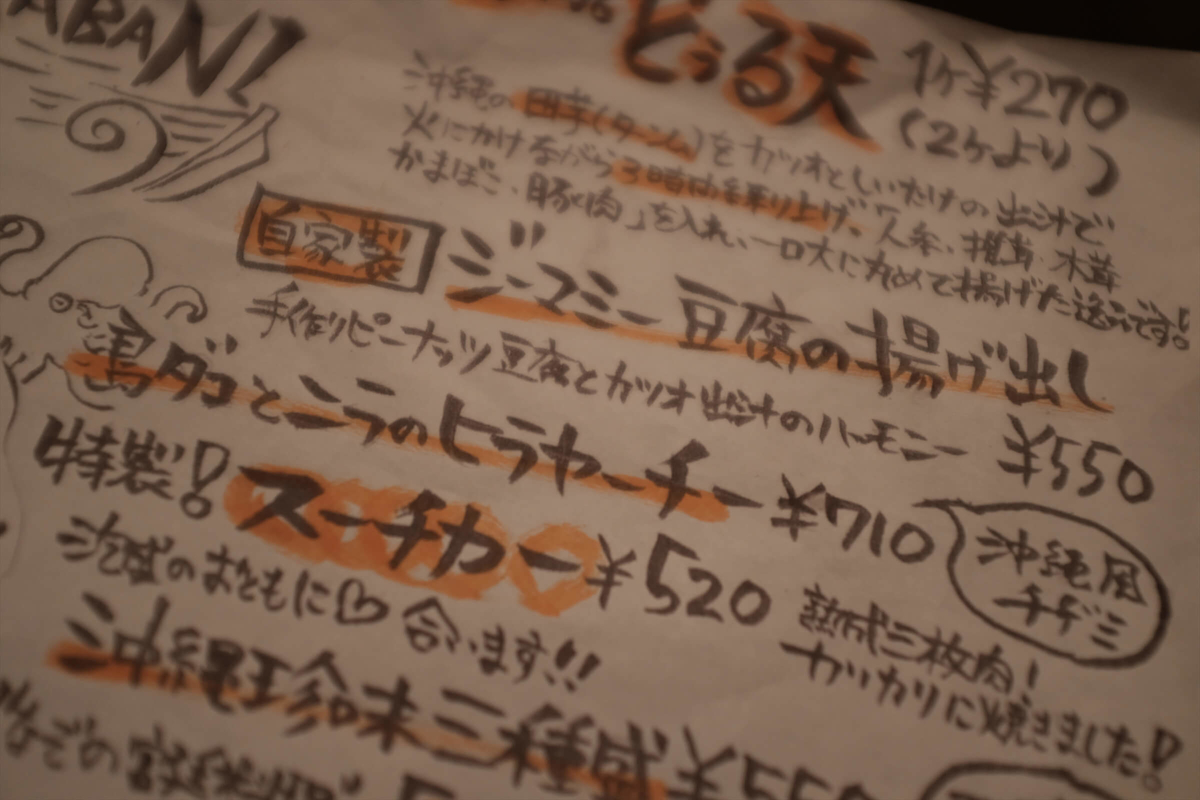 ABANI
どぅる天 1ケ¥270
(2ケより)
沖縄の田芋(ターンム)をカツオとしいたけの出汁で
火にかけながら3時間練り上げ、人参、椎茸、木茸
かまぼこ、豚肉」を入れ、一口大に丸めて揚げた逸品です!
自家製 ジーマミー豆腐の揚げ出し
手作りピーナッツ豆腐とカツオ出汁のハーモニー ¥550
島ダコとニラのヒラヤーチー ¥710
沖縄風
チヂミ
特製! スーチカー ¥520
熟成三枚肉!
カリカリに焼きました!
泡盛のおともに♡合います!!
沖縄珍味三種盛 ¥550
などの